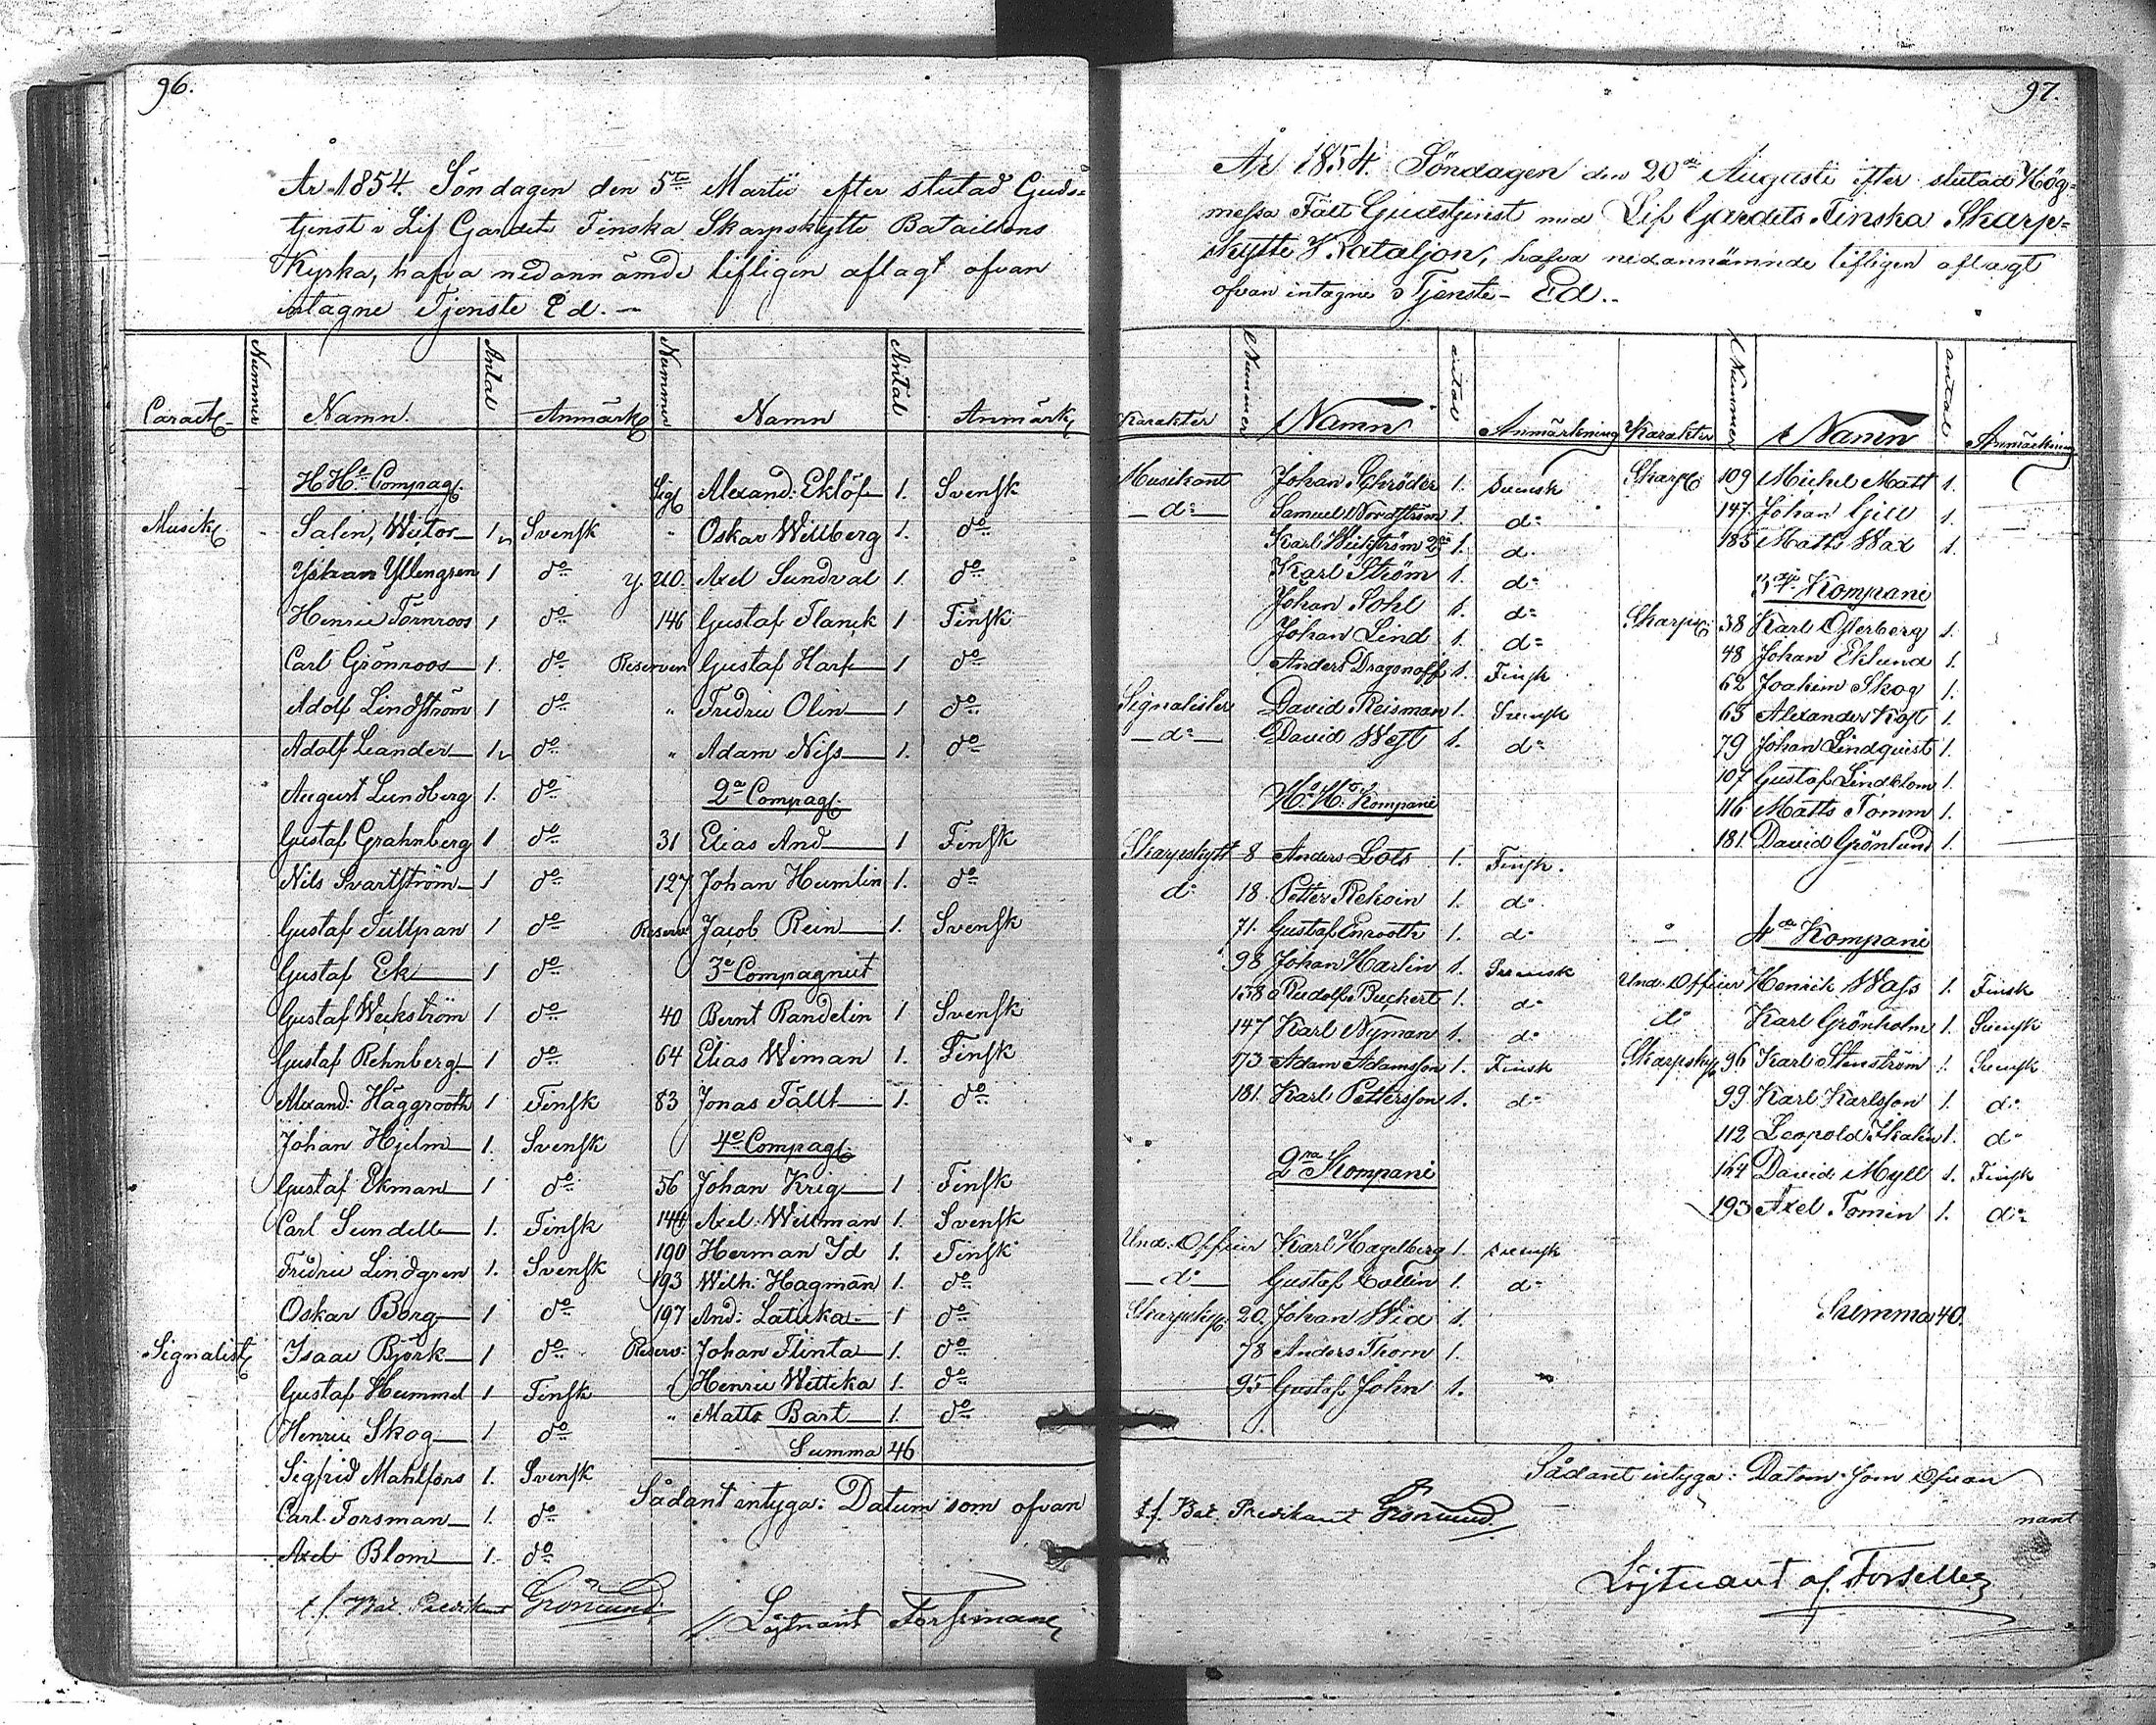 96.
År 1854. Söndagen den 5te Martii efter slutad Guds-
tjenst i Lif Gardets Finska Skarpskytte Bataillons
Kyrka, hafva nedannämde lifligen aflagt ofvan
intagne Tjenste Ed. —
Caract Nummer Namn. Antal Anmärk
H. He Compag.
Musik Salin, Victor 1 Svensk
Yllengren 1 do
Henric Törnroos 1 do
Carl Grönroos 1. do
Adolf Lindström 1 do
Adolf Leander 1 do
August Lundberg 1. do
Gustaf Grahnberg 1 do
Nils Svartström 1 do
Gustaf Tullpan 1 do
Gustaf Ek 1 do
Gustaf Weckström 1 do
Gustaf Rehnberg 1 do
Alexand: Häggrooth 1 Finsk
Johan Hjelm 1. Svensk
Gustaf Ekman 1 do
Carl Sundell 1. Finsk
Fredric Lindgren 1. Svensk
Oskar Borg 1 do
Signalist Isaac Björk 1 do
Gustaf Hummel 1 Finsk
Henric Skog 1 do
Sigfrid Mahlfors 1. Svensk
Carl Forsman 1. do
Axel Blom 1. do
t.f. Bat. Predikant Grönlund
Nummer Namn Antal Anmärk
Sig Alexand: Eklöf 1. Svensk
" Oskar Willberg 1. do
Axel Sundval 1. do
146 Gustaf Flanck 1 Finsk
Reserven Gustaf Harf 1 do
" Fredric Olin 1 do
" Adam Niss 1. do
2a Compag.
31 Elias And 1 Finsk
127 Johan Humlin 1. do
Reserv: Jacob Rein 1. Svensk
3e Compagniet
40 Bernt Randelin 1 Svensk
64 Elias Wiman 1. Finsk
83 Jonas Fällt 1. do
4e Compag.
56 Johan Krig 1 Finsk
144 Axel Willman 1. Svensk
190 Herman Id 1. Finsk
193 Wilh: Hagman 1. do
197 And: Latuka 1 do
Reserv: Johan Flinta 1. do
Henric Wittika 1. do
" Matts Bart 1. do
Summa 46
Sådant intyga: Datum som ofvan
Löjtnant Forssman
97.
År 1854. Söndagen den 20de Augusti efter slutad Hög-
messa Fält Gudstjenst med Lif Gardets Finska Skarp-
skytte Bataljon, hafva nedannämnde lifligen aflagt
ofvan intagne Tjenste-Ed.-
Karakter Nummer Namn antal Anmärkning
Musikant Johan Schröder 1. Svensk
— d: — Samuel Nordström 1. d:
Karl Weckström 2dre 1. d.
Karl Ström 1. d:
Johan Sohl 1. d:
Johan Lind 1. d:
Anders Dragonoff 1. Finsk
Signalister David Reisman 1. Svensk
— d: — David West 1. d:
H. H. Kompani
Skarpskytt 8 Anders Lots 1. Finsk.
d: 18 Petter Rekoin 1. d:
71. Gustaf Enrooth 1. d:
98 Johan Harlin 1. Svensk
138 Rudolf Buchert 1. d:
147 Karl Nyman 1. d:
173 Adam Adamsson 1. Finsk
181. Karl Pettersson 1. d:
2ra Kompani
Und: Officier Karl Hagelberg 1. Svensk
— d: — Gustaf Collin 1. d:
Skarpsky. 20. Johan Wia 1.
78 Anders Thom 1.
95 Gustaf John 1.
t.f. Bat. Predikant Grönlund
Karakter Nummer Namn antal Anmärkning
Skarp. 109 Michel Matt 1.
147. Johan Gill 1.
185 Matts Wax 1.
3je Kompani
Skarpsk: 38 Karl Osterberg 1.
48 Johan Eklund 1.
62 Joakim Skog 1.
65 Alexander Kost 1.
79 Johan Lindquist 1.
107 Gustaf Lindblom 1.
116 Matts Tomm 1.
181. David Grönlund 1.
4de Kompani
Und: Officier Henrik Wass 1. Finsk
d: Karl Grönholm 1. Svensk
Skarpsky. 96 Karl Stenström 1. Svensk
99 Karl Karlsson 1. d:
112 Leopold 1. d:
164 David Myll 1. Finsk
193 Axel Tomin 1. d:
Summa 40.
Sådant intyga: Datum som Ofvan
nant
Löjtnant af Forselles